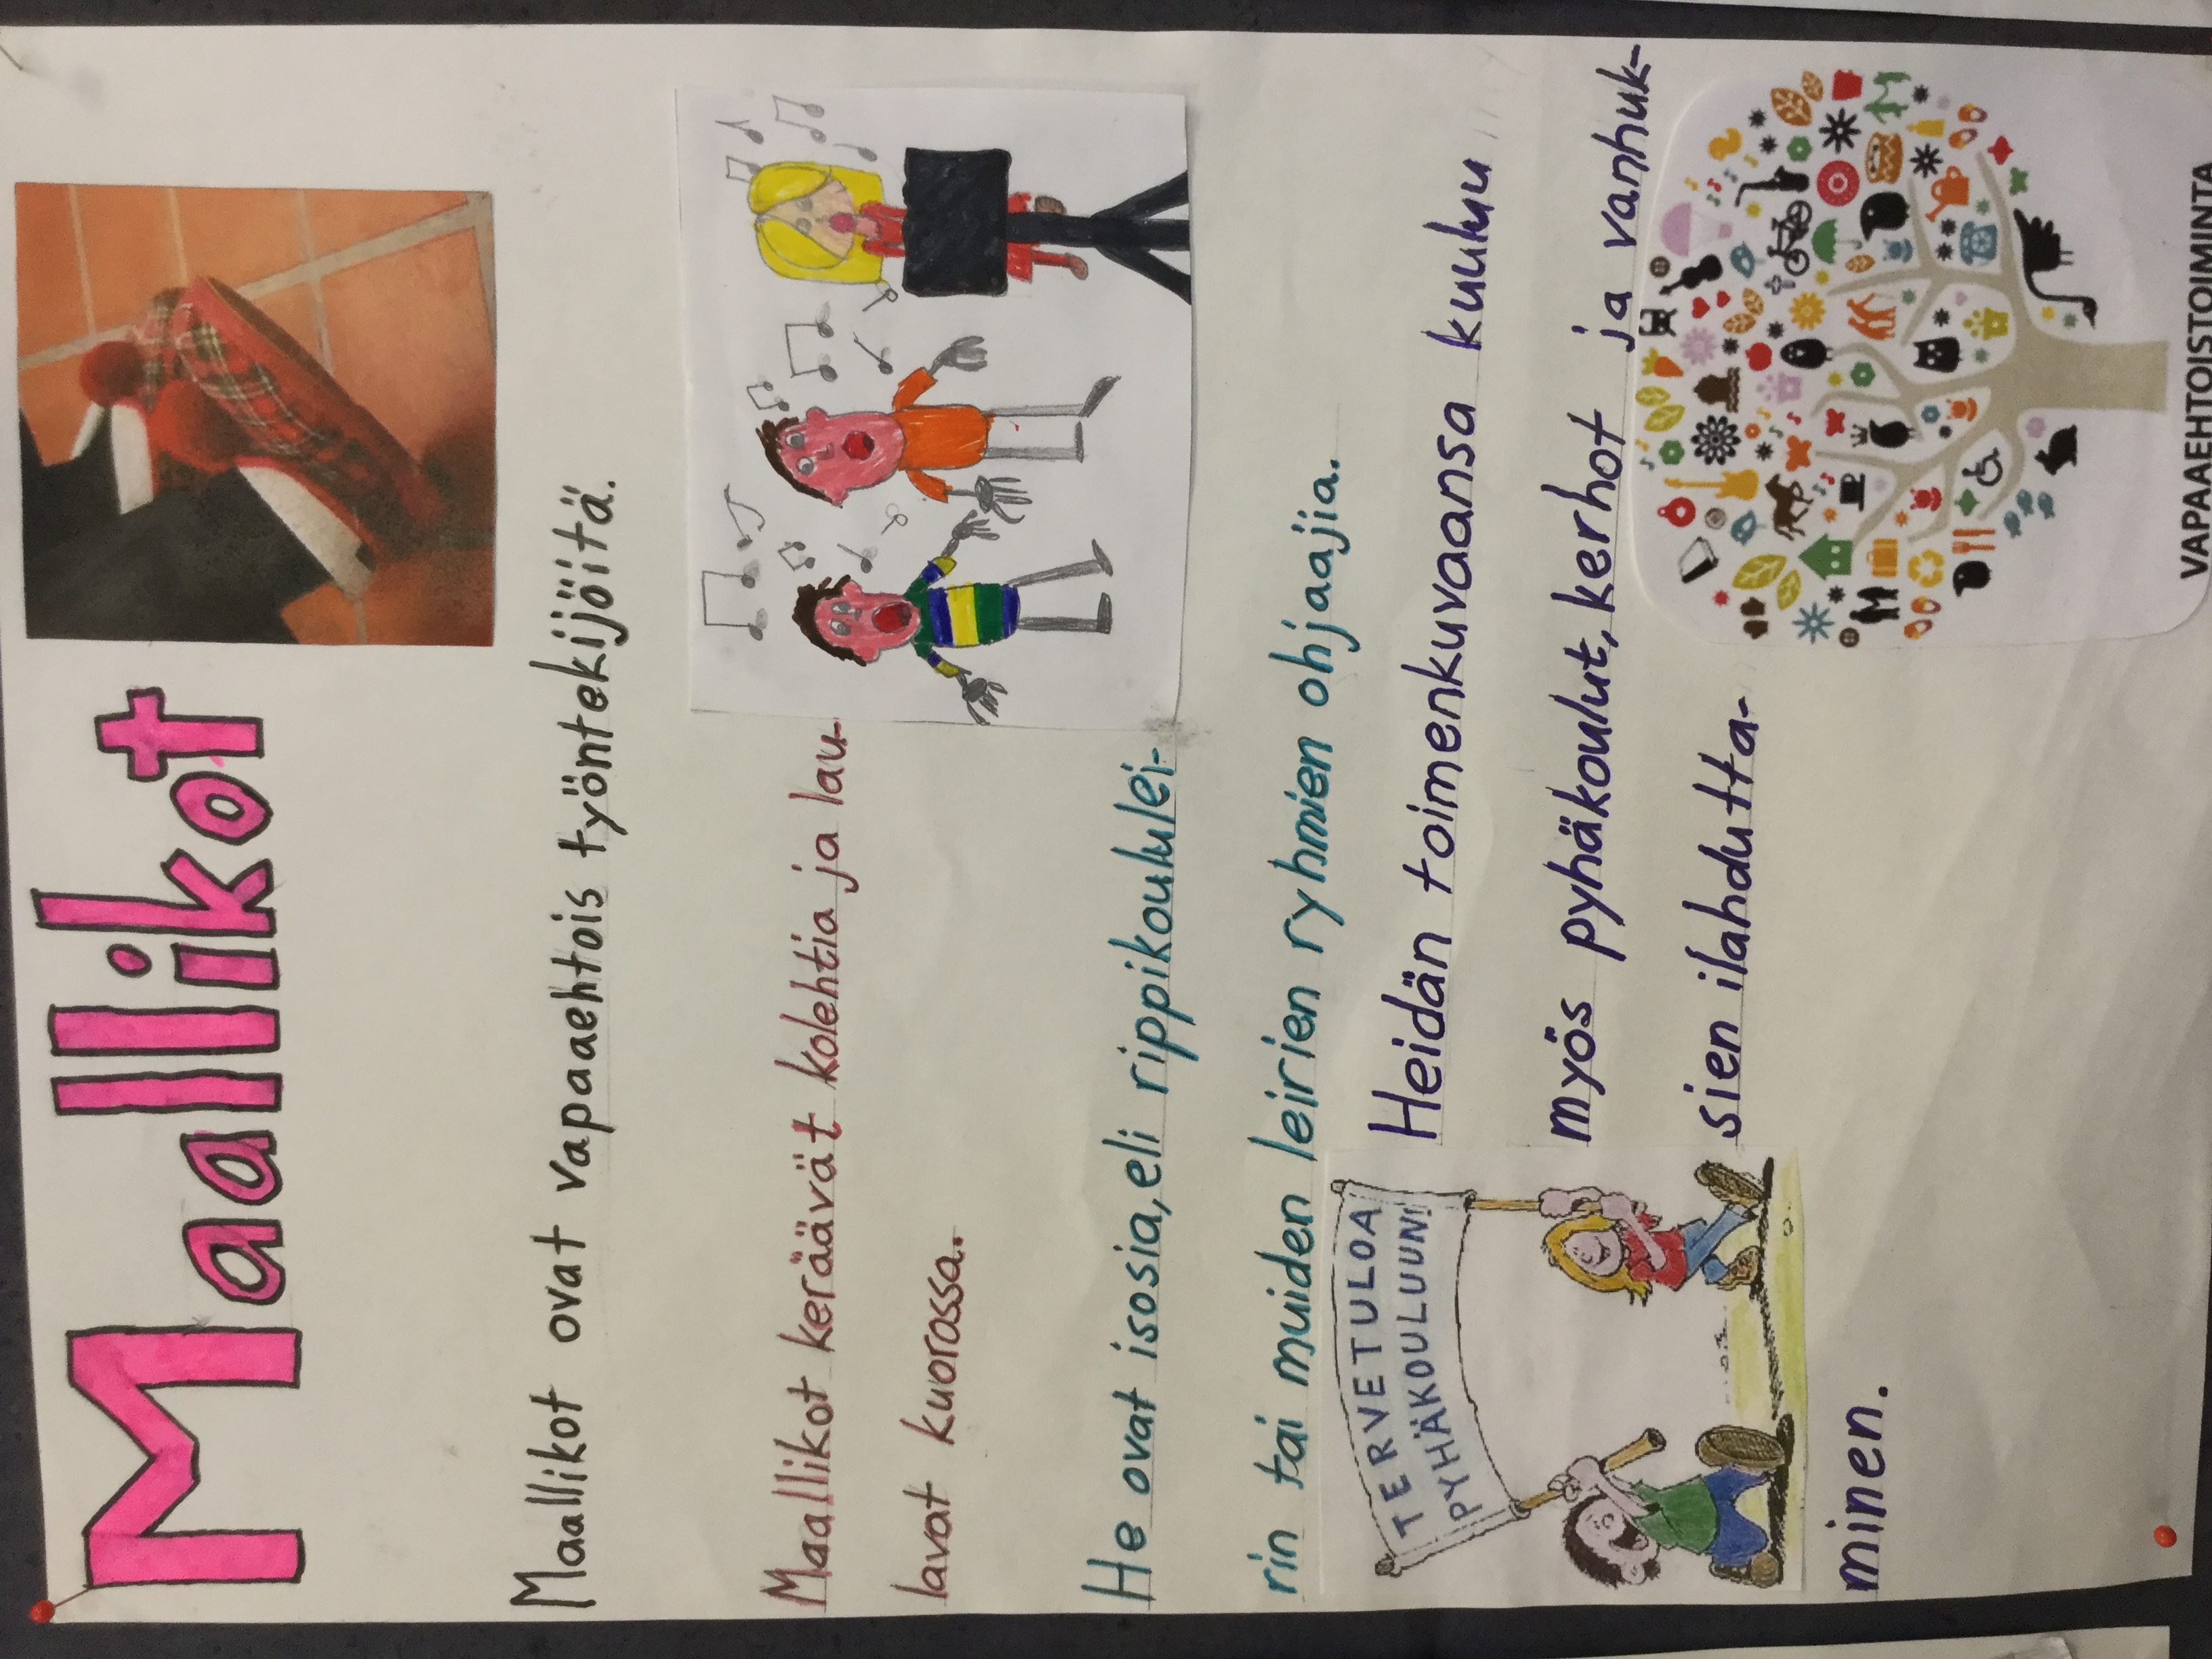 Maallikot
Maallikot ovat vapaaehtois työntekijöitä.
Maallikot keräävät kolehtia ja lau-
lavat kuorossa.
He ovat isosia, eli rippikoululei-
rin tai muiden leirien ryhmien ohjaajia.
Heidän toimenkuvaansa kuuluu
myös pyhäkoulut, kerhot ja vanhuk-
sien ilahdutta-
minen.
TERVETULOA
PYHÄKOULUUN!
VAPAAEHTOISTOIMINTA